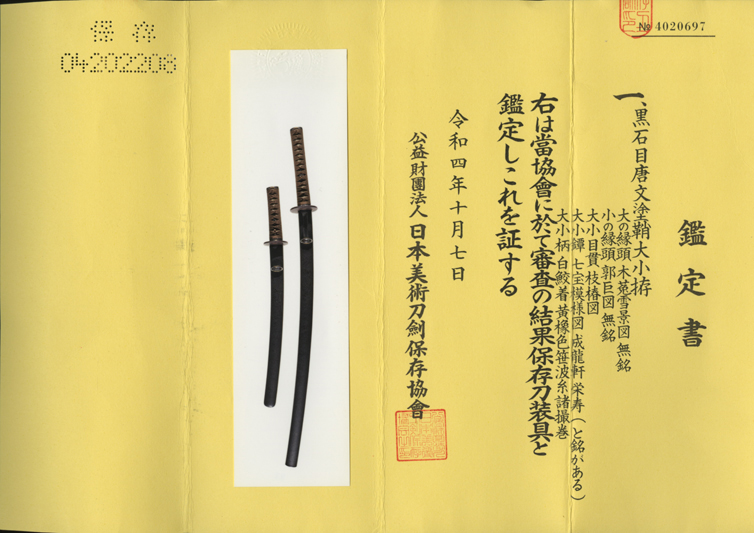 № 4020697
鑑定書
一、黒石目唐文塗鞘大小拵
大の縁頭 木菟雪景図 無銘
小の縁頭 郭巨図 無銘
大小目貫 枝椿図
大小鐔 七宝模様図 成龍軒 栄寿(と銘がある)
大小柄 白鮫着黄橡色笹波糸諸撮巻
右は當協會に於て審査の結果保存刀装具と
鑑定しこれを証する
令和四年十月七日
公益財團法人 日本美術刀劍保存協會
保存
04202208